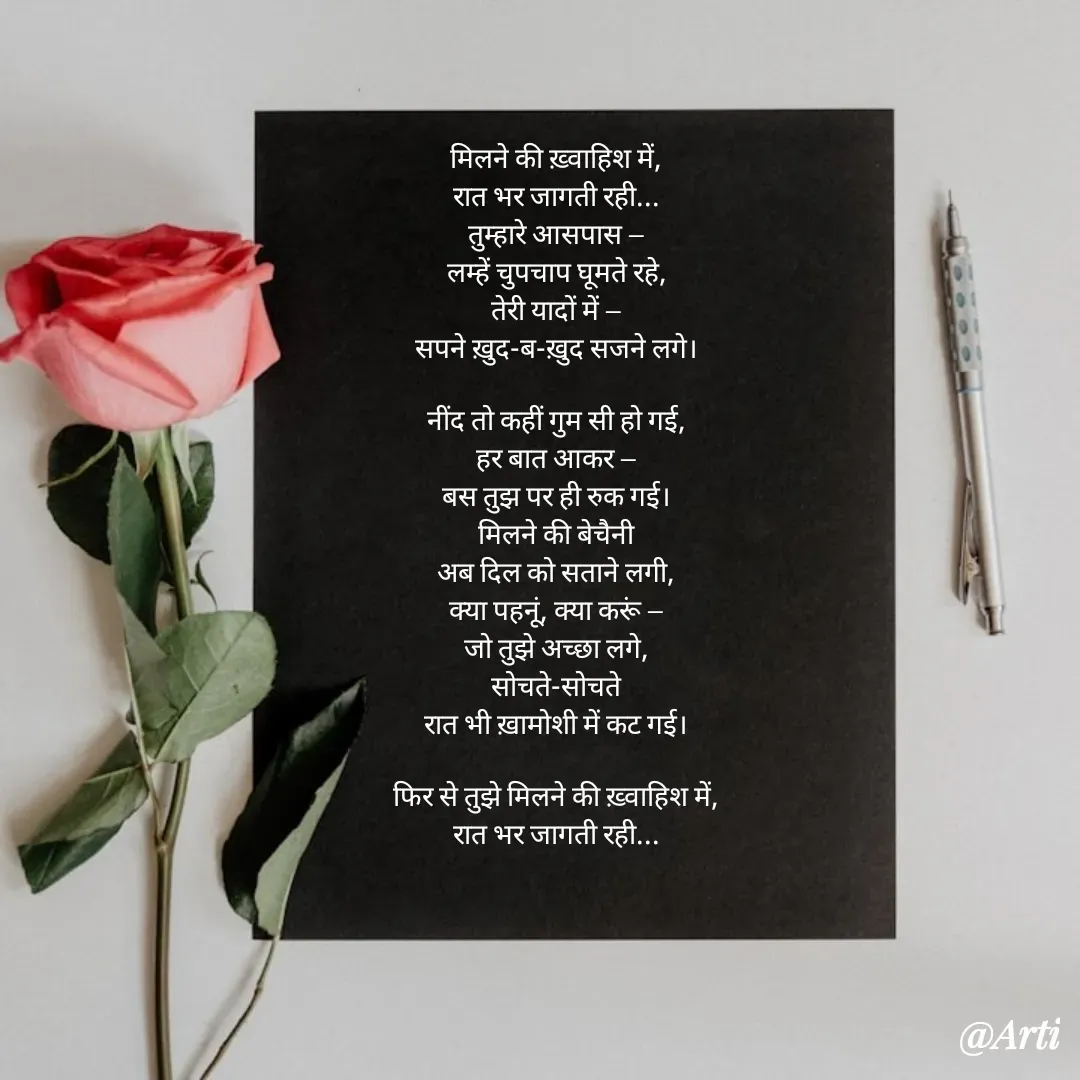 मिलने की ख़्वाहिश में,
रात भर जागती रही...
तुम्हारे आसपास –
लम्हें चुपचाप घूमते रहे,
तेरी यादों में –
सपने ख़ुद-ब-ख़ुद सजने लगे।
नींद तो कहीं गुम सी हो गई,
हर बात आकर –
बस तुझ पर ही रुक गई।
मिलने की बेचैनी
अब दिल को सताने लगी,
क्या पहनूं, क्या करूं –
जो तुझे अच्छा लगे,
सोचते-सोचते
रात भी ख़ामोशी में कट गई।
फिर से तुझे मिलने की ख़्वाहिश में,
रात भर जागती रही...
@Arti